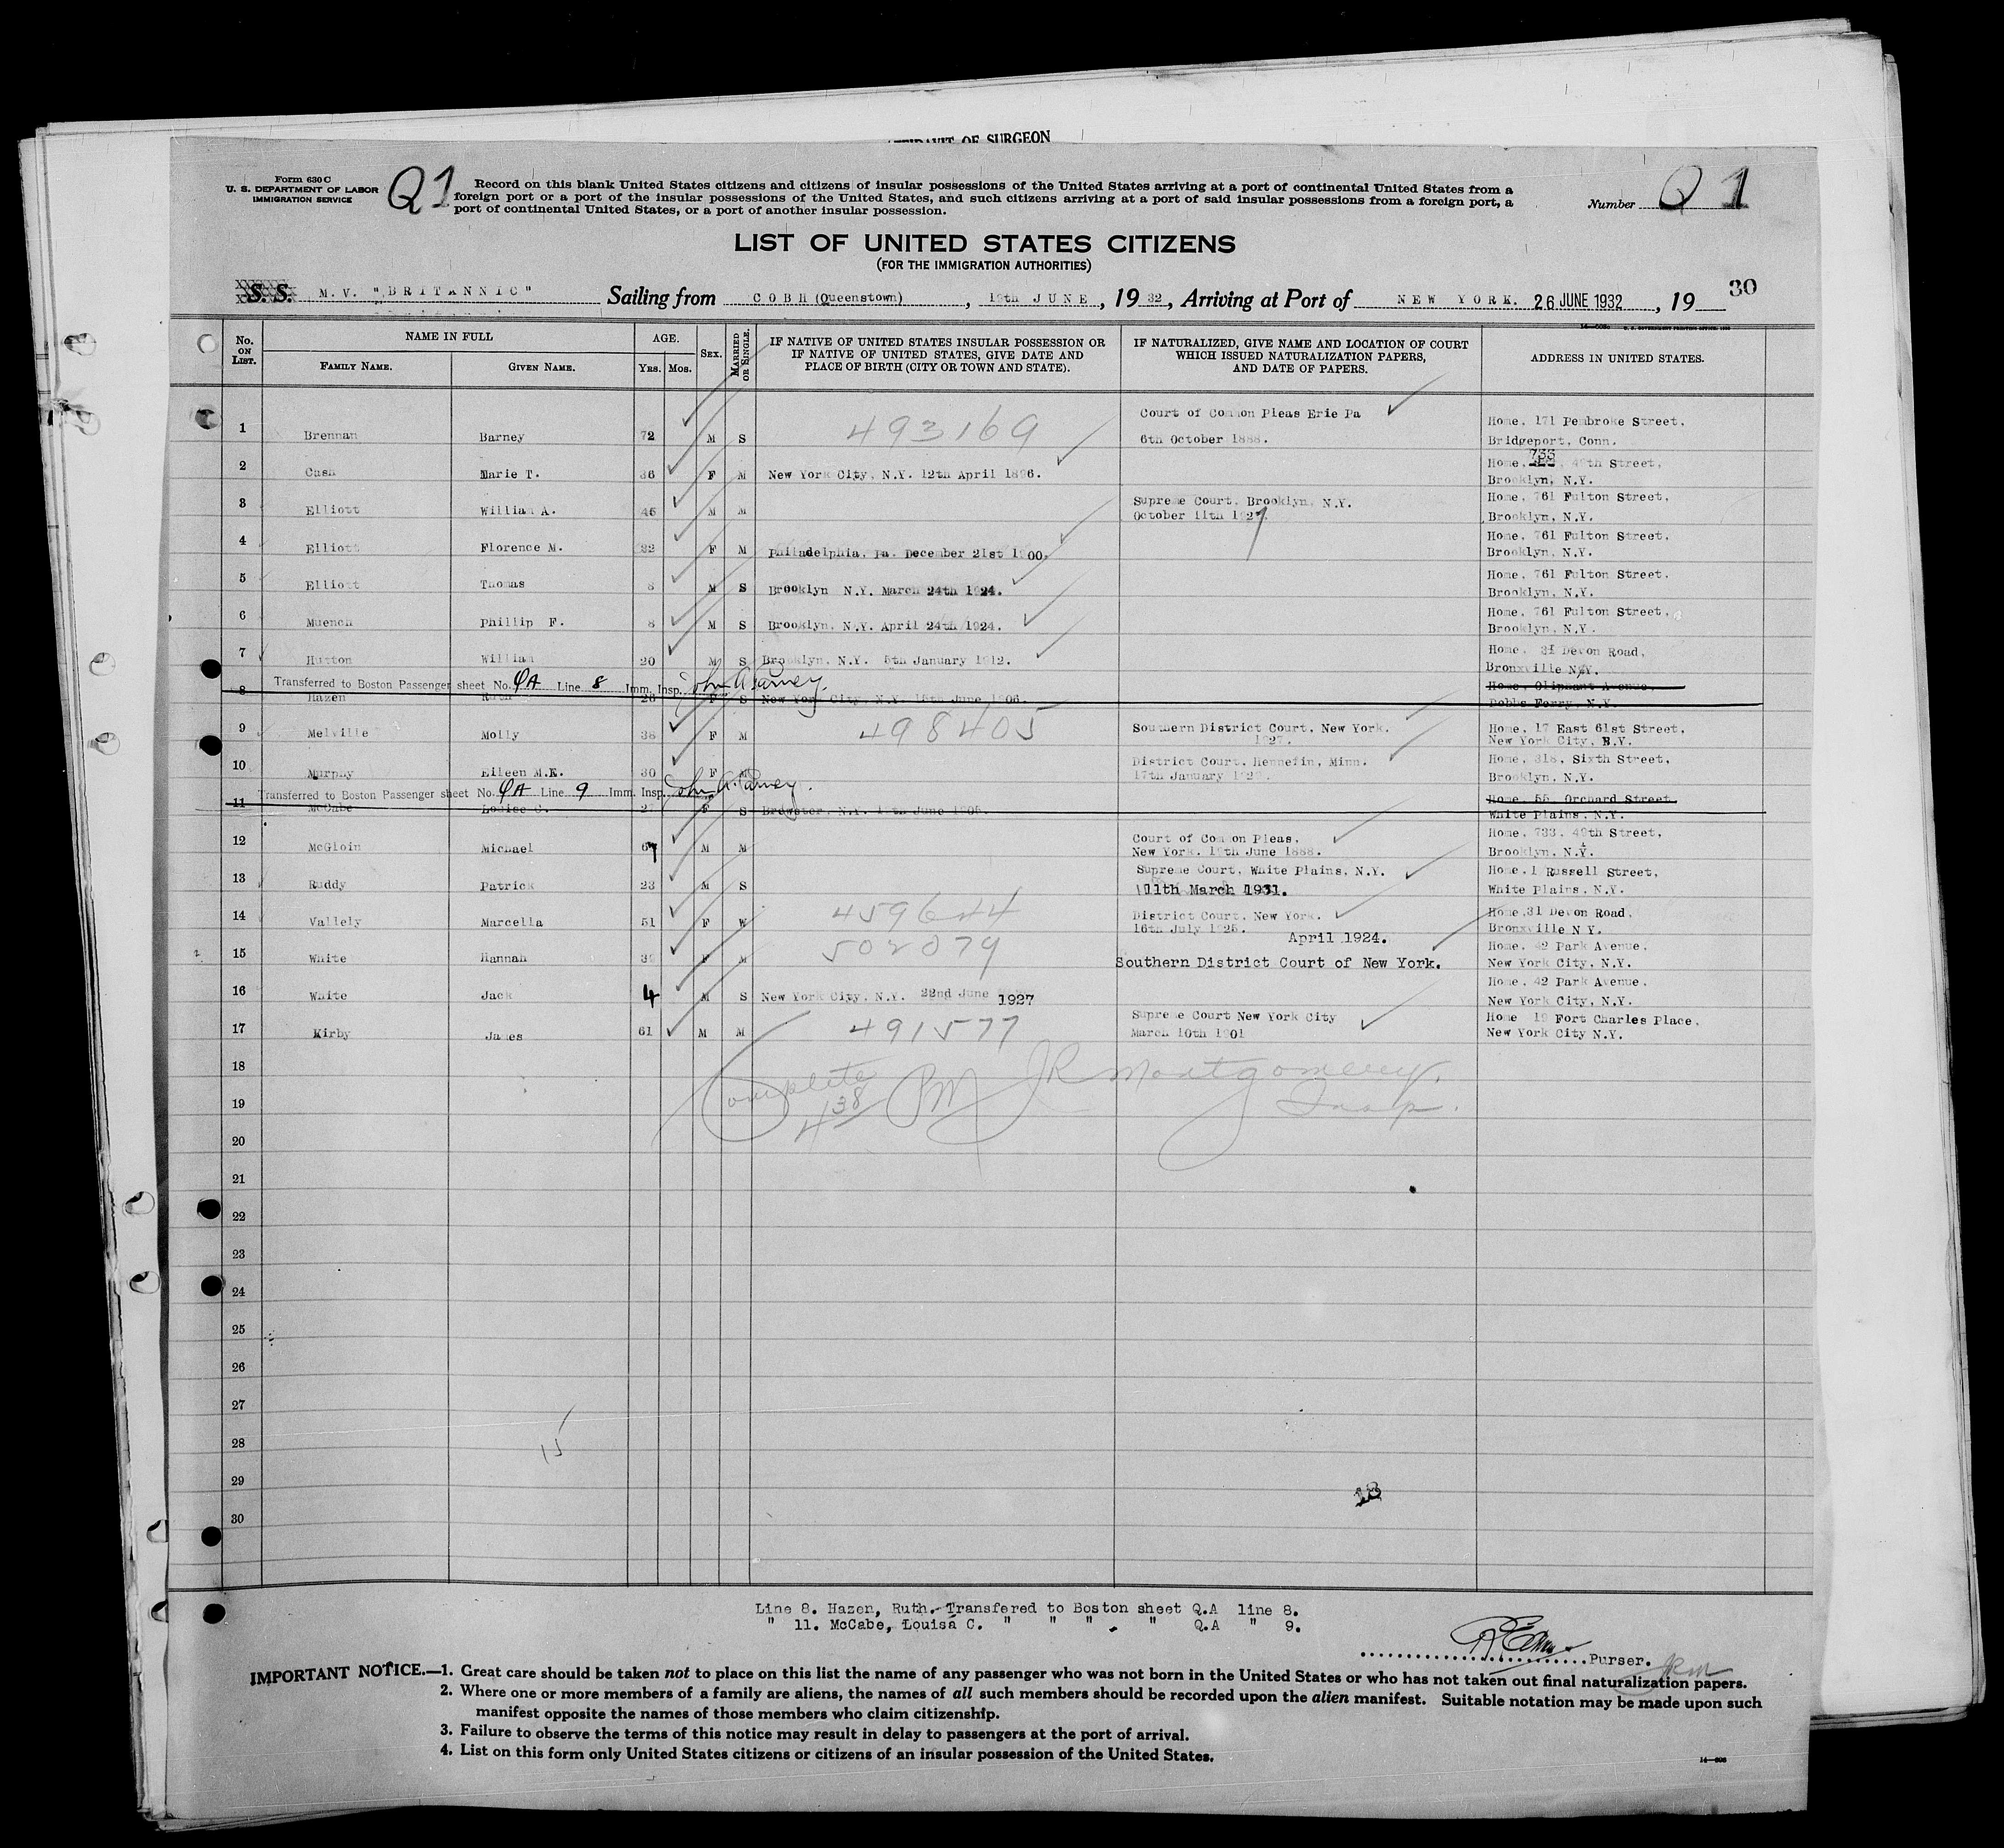 OF SURGEON
Form 630 C
U. S. DEPARTMENT OF LABOR
IMMIGRATION SERVICE
Q1
Record on this blank United States citizens and citizens of insular possessions of the United States arriving at a port of continental United States from a
foreign port or a port of the insular possessions of the United States, and such citizens arriving at a port of said insular possessions from a foreign port, a
port of continental United States, or a port of another insular possession.
Number Q 1
LIST OF UNITED STATES CITIZENS
(FOR THE IMMIGRATION AUTHORITIES)
30
S. S. M.V. "BRITANNIC" Sailing from COBH (Queenstown), 19th JUNE, 1932, Arriving at Port of NEW YORK. 26 JUNE 1932, 19
No. ON LIST. NAME IN FULL FAMILY NAME. GIVEN NAME. AGE. YRS. MOS. SEX. MARRIED OR SINGLE. IF NATIVE OF UNITED STATES INSULAR POSSESSION OR IF NATIVE OF UNITED STATES, GIVE DATE AND PLACE OF BIRTH (CITY OR TOWN AND STATE). IF NATURALIZED, GIVE NAME AND LOCATION OF COURT WHICH ISSUED NATURALIZATION PAPERS, AND DATE OF PAPERS. ADDRESS IN UNITED STATES.
1 Brennan Barney 72 M S 493169 Court of Common Pleas Erie Pa 6th October 1888. Home, 171 Pembroke Street, Bridgeport, Conn.
2 Cash Marie T. 36 F M New York City, N.Y. 12th April 1896. Home, 733, 49th Street, Brooklyn, N.Y.
3 Elliott William A. 46 M M Supreme Court, Brooklyn, N.Y. October 11th 1927. Home, 761 Fulton Street, Brooklyn, N.Y.
4 Elliott Florence M. 32 F M Philadelphia, Pa. December 21st 1900. Home, 761 Fulton Street, Brooklyn, N.Y.
5 Elliott Thomas 8 M S Brooklyn N.Y. March 24th 1924. Home, 761 Fulton Street, Brooklyn, N.Y.
6 Muench Phillip F. 8 M S Brooklyn, N.Y. April 24th 1924. Home, 761 Fulton Street, Brooklyn, N.Y.
7 Hutton William 20 M S Brooklyn, N.Y. 5th January 1912. Home, 31 Devon Road, Bronxville N.Y.
Transferred to Boston Passenger sheet No. QA Line 8 Imm. Insp.
8 Hazen Ruth 26 F S New York City, N.Y. 15th June 1906. Home, Oliphant Avenue, Dobbs Ferry, N.Y.
9 Melville Molly 38 F M 498405 Southern District Court, New York. 1927. Home, 17 East 61st Street, New York City, N.Y.
10 Murphy Eileen M.K. 30 F M District Court, Hennefin, Minn. 17th January Home, 318, Sixth Street, Brooklyn, N.Y.
Transferred to Boston Passenger sheet No. QA Line 9 Imm. Insp.
11 McCabe Louise C. 27 F S Brewster, N.Y. June 1905. Home, 55, Orchard Street, White Plains, N.Y.
12 McGloin Michael 67 M M Court of Common Pleas, New York. 19th June 1888. Home, 733, 49th Street, Brooklyn, N.Y.
13 Ruddy Patrick 23 M S Supreme Court, White Plains, N.Y. 11th March 1931. Home, 1 Russell Street, White Plains, N.Y.
14 Vallely Marcella 51 F W 459644 District Court, New York. 16th July 1925. Home, 31 Devon Road, Bronxville N Y.
15 White Hannah F M 502079 April 1924. Southern District Court of New York. Home, 42 Park Avenue, New York City, N.Y.
16 White Jack 4 M S New York City, N.Y. 22nd June 1927 Home, 42 Park Avenue, New York City, N.Y.
17 Kirby James 61 M M 491577 Supreme Court New York City March 10th 1901 Home 19 Fort Charles Place, New York City N.Y.
18 Complete 438 PM JR Montgomery.
19 Insp.
20
21
22
23
24
25
26
27
28 15
29 18
30
Line 8. Hazen, Ruth. Transfered to Boston sheet Q.A line 8.
" 11. McCabe, Louisa C. " " " " Q.A " 9.
Purser.
JRM
IMPORTANT NOTICE.—1. Great care should be taken not to place on this list the name of any passenger who was not born in the United States or who has not taken out final naturalization papers.
2. Where one or more members of a family are aliens, the names of all such members should be recorded upon the alien manifest. Suitable notation may be made upon such
manifest opposite the names of those members who claim citizenship.
3. Failure to observe the terms of this notice may result in delay to passengers at the port of arrival.
4. List on this form only United States citizens or citizens of an insular possession of the United States.